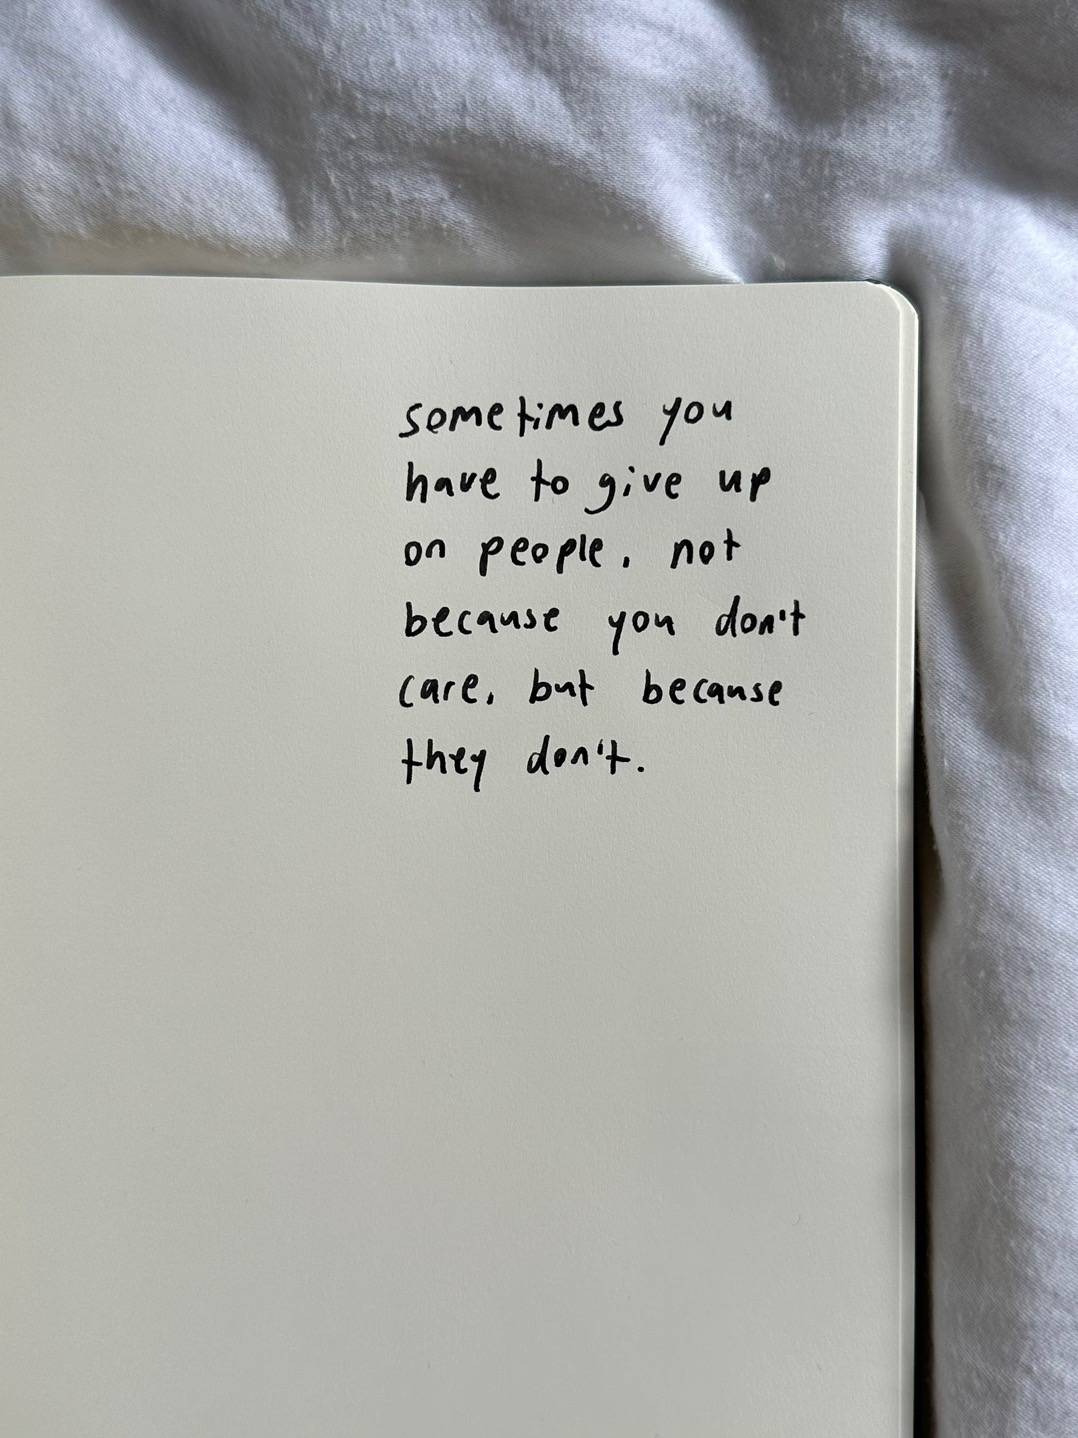 sometimes you
have to give up
on people, not
because you don't
care, but because
they don't.